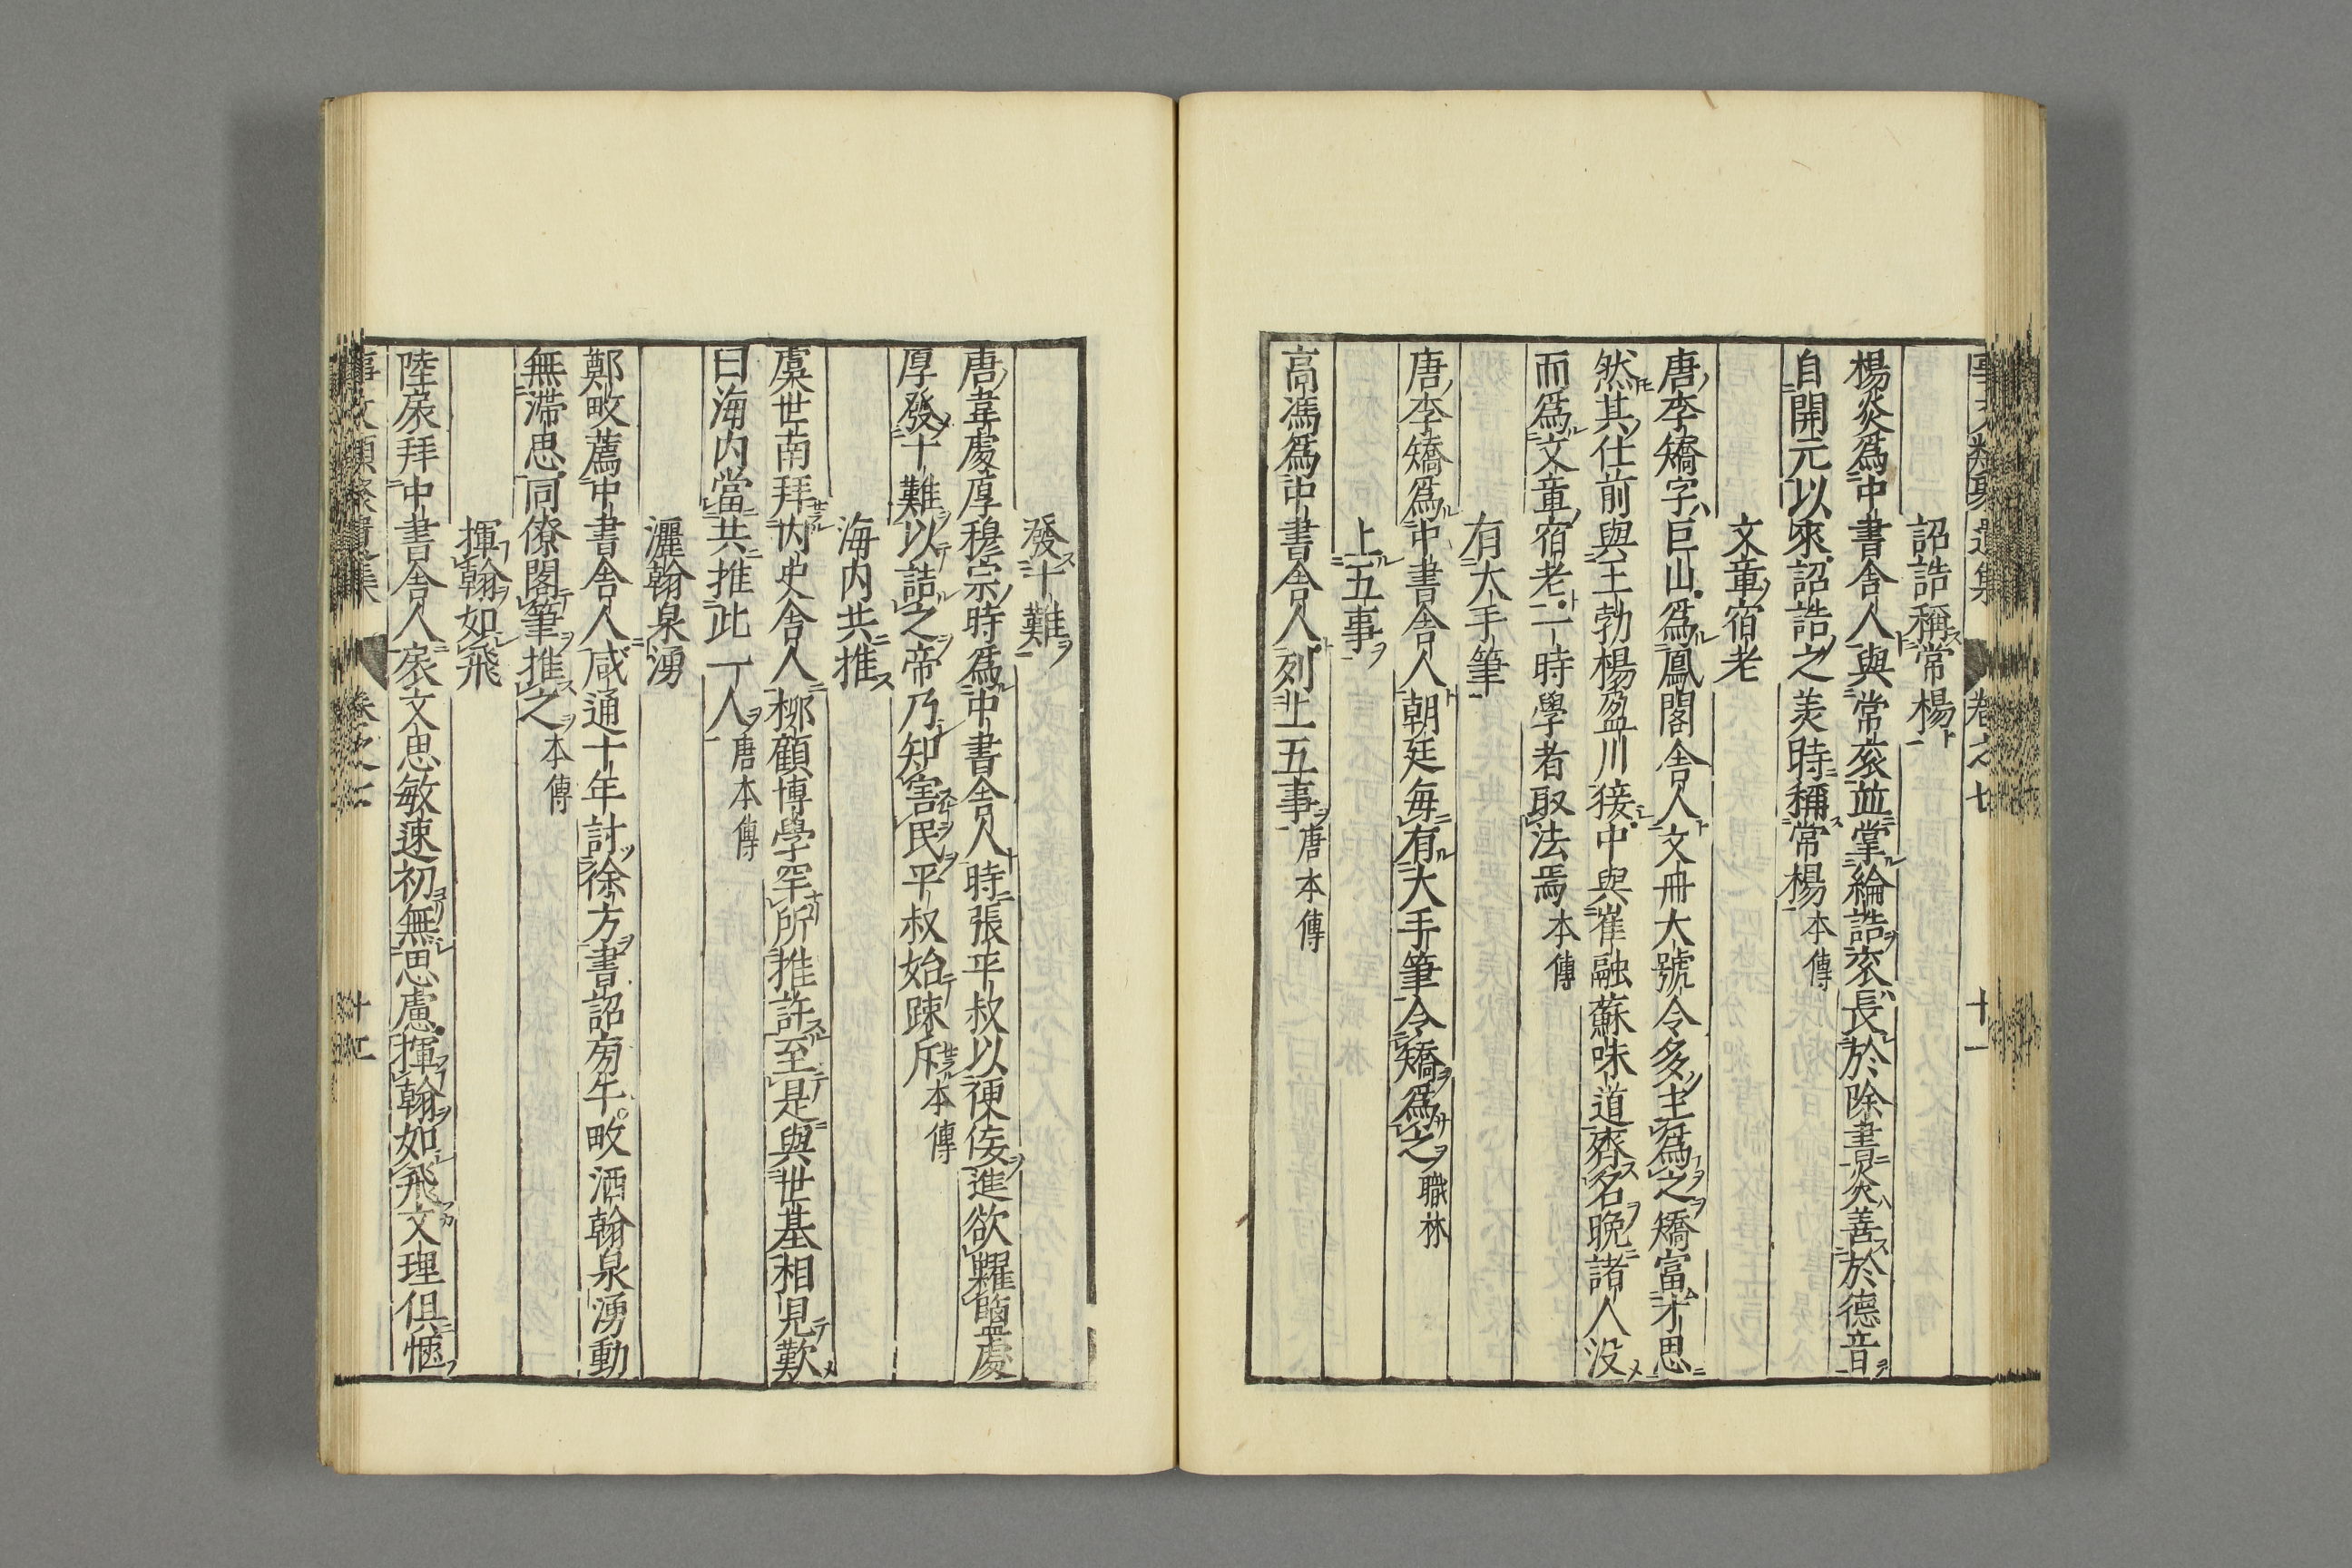 詔誥稱常楊
楊炎爲中書舍人與常衮並掌綸誥衮長於除書炎善於德音
自開元以來詔誥之美時稱常楊本傳
文章宿老
唐李矯字巨山爲鳳閣舍人文冊大號令多主爲之矯富才思
然其仕前與王勃楊盈川接中與崔融蘇味道齊名晚諸人没
而爲文章宿老一時學者取法焉本傳
有大手筆
唐李矯爲中書舍人朝廷毎有大手筆令矯爲之職林
上五事
高馮爲中書舍人列上五事唐本傳
發十難
唐韋處厚穆宗時爲中書舍人時張平叔以便佞進欲糶鹽處
厚發十難以詰之帝乃知害民平叔始踈斥本傳
海内共推
虞世南拜内史舍人柳顧博學罕所推許至是與世基相見歎
曰海内當共推此一人唐本傳
灑翰泉湧
鄭畋薦中書舍人咸通十年討徐方書詔旁午畋洒翰泉湧動
無滯思同僚閣筆推之本傳
揮翰如飛
陸扆拜中書舍人扆文思敏速初無思慮揮翰如飛文理俱愜